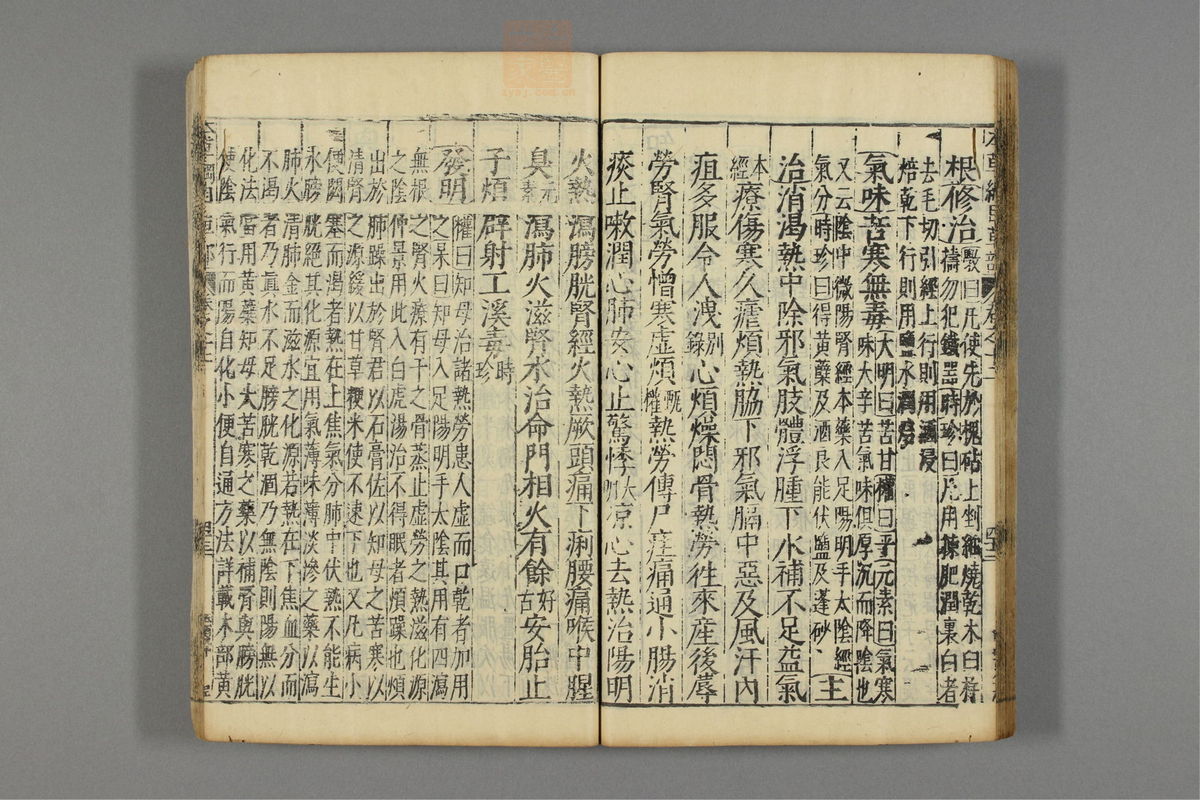 根修治斅曰凡使先於槐砧上剉細燒乾木臼杵
搗勿犯鐵器時珍曰凡用揀肥潤裏白者
去毛切引經上行則用酒浸
焙乾下行則用鹽水潤焙
氣味苦寒無毒大明曰苦甘權曰平元素曰氣寒
味大辛苦氣味俱厚沉而降陰也
又云陰中微陽腎經本藥入足陽明手太陰經
氣分時珍曰得黃蘗及酒良能伏鹽及蓬砂
主
治消渴熱中除邪氣肢體浮腫下水補不足益氣
本經療傷寒久瘧煩熱脇下邪氣膈中惡及風汗內
疸多服令人洩別錄心煩燥悶骨熱勞往來產後蓐
勞腎氣勞憎寒虛煩甄權熱勞傳尸疰痛通小腸消
痰止嗽潤心肺安心止驚悸大明凉心去熱治陽明
火熱瀉膀胱腎經火熱厥頭痛下痢腰痛喉中腥
臭元素瀉肺火滋腎水治命門相火有餘好古安胎止
子煩辟射工溪毒時珍
發明權曰知母治諸熱勞患人虛而口乾者加用
之杲曰知母入足陽明手太陰其用有四瀉
無根之腎火療有汗之骨蒸止虛勞之熱滋化源
之陰仲景用此入白虎湯治不得眠者煩躁也煩
出於肺躁出於腎君以石膏佐以知母之苦寒以
清腎之源緩以甘草粳米使不速下也又凡病小
便閟塞而渴者熱在上焦氣分肺中伏熱不能生
水膀胱絕其化源宜用氣薄味薄淡滲之藥以瀉
肺火清肺金而滋水之化源若熱在下焦血分而
不渴者乃真水不足膀胱乾涸乃無陰則陽無以
化法當用黃蘗知母大苦寒之藥以補腎與膀胱
使陰氣行而陽自化小便自通方法詳載木部黃